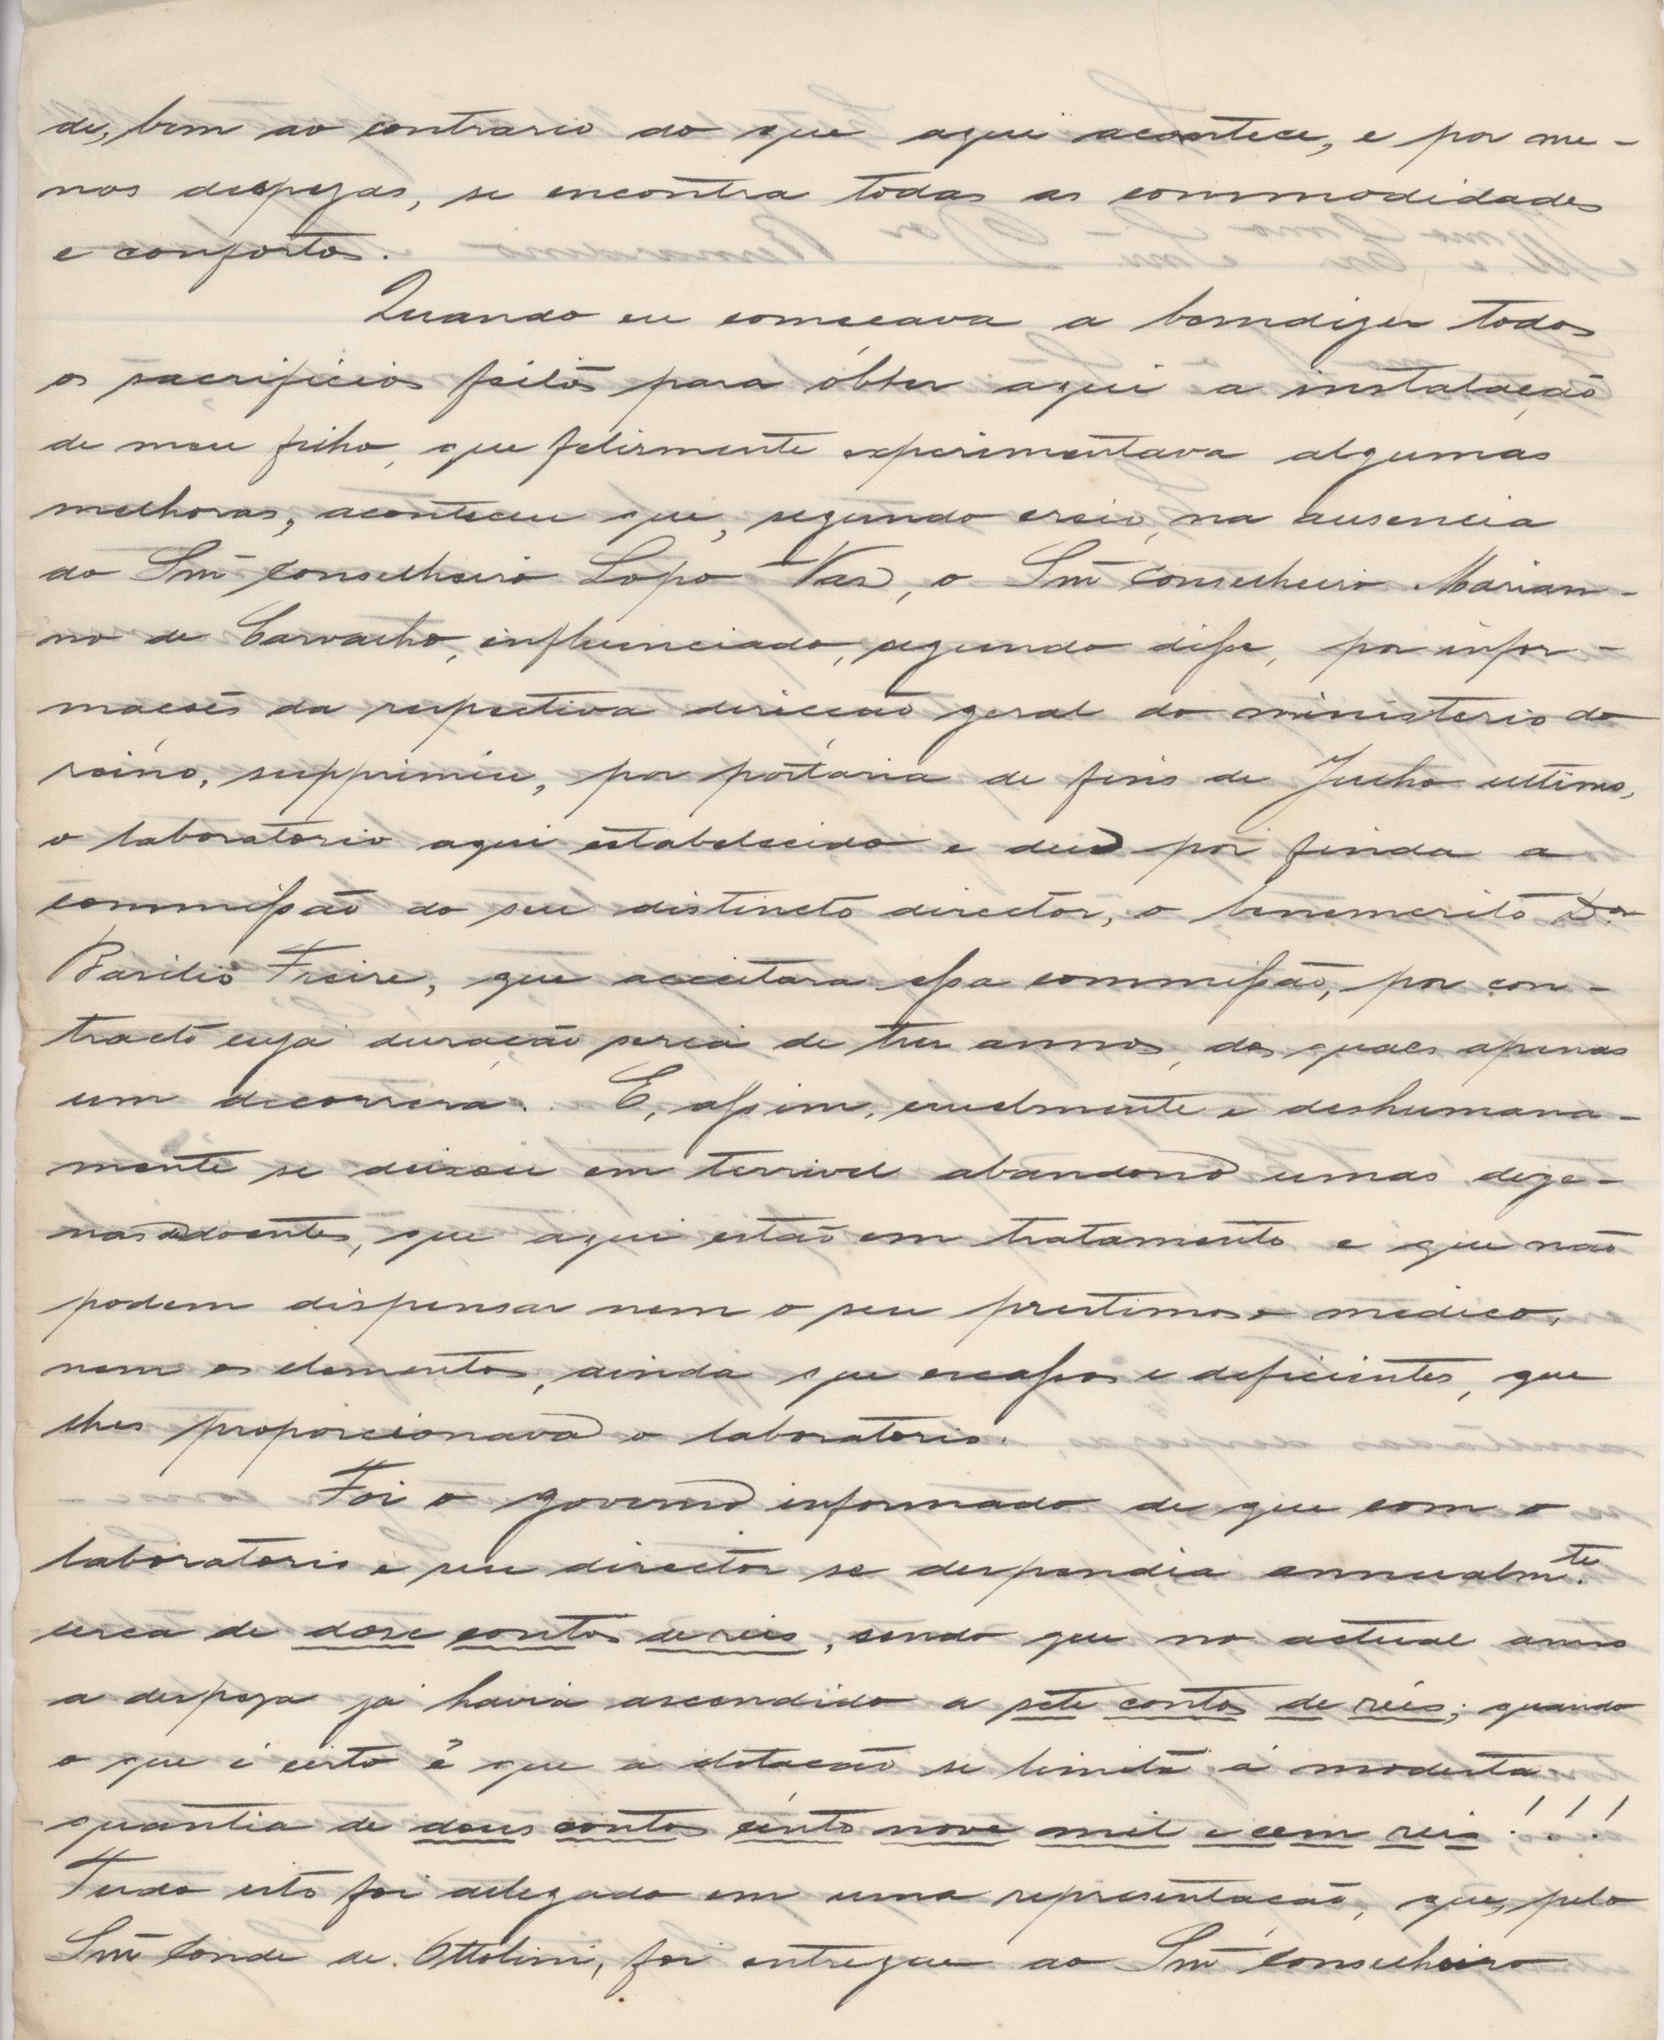 de, bem ao contrario do que aqui acontece, e por me-
nos despezas, se encontra todas as commodidades
e confortos.
Quando eu começava a bemdizer todos
os sacrificios feitos para obter aqui a instalação
de meu filho, que felismente experimentava algumas
melhoras, aconteceu que, segundo creio, na ausencia
do Snr̃ Conselheiro Lopo Vaz, o Snr̃ Conselheiro Marian-
no de Carvalho, influenciado, segundo disse, por infor-
mações da respectiva direcção geral do ministerio do
reino, supprimiu, por portaria de fins de Julho ultimo,
o laboratorio aqui estabelecido e deu por finda a
commissão do seu distincto director, o benemerito Dor
Basilio Freire, que acceitara essa commissão, por con-
tracto cuja duração seria de tres annos, dos quaes apenas
um decorrera. E, assim, cruelmente e deshumana-
mente se deixou em terrivel abandono umas deze-
nas de doentes, que aqui estão em tratamento e que não
podem dispensar nem o seu prestimoso medico,
nem os elementos, ainda que escassos e deficientes, que
lhes proporcionava o laboratorio.
Foi o governo informado de que com o
laboratorio e seu director se despendia annualmte.
cerca de dose contos de reis, sendo que no actual anno
a despeza já havia ascendido a sete contos de réis; quando
o que é certo é que a dotação se limita á modesta
quantia de dous contos cento nove mil e cem reis!!!
Tudo isto foi allegado em uma representação, que, pelo
Snr̃ Conde de Ottolini, foi entregue ao Snr̃ Conselheiro